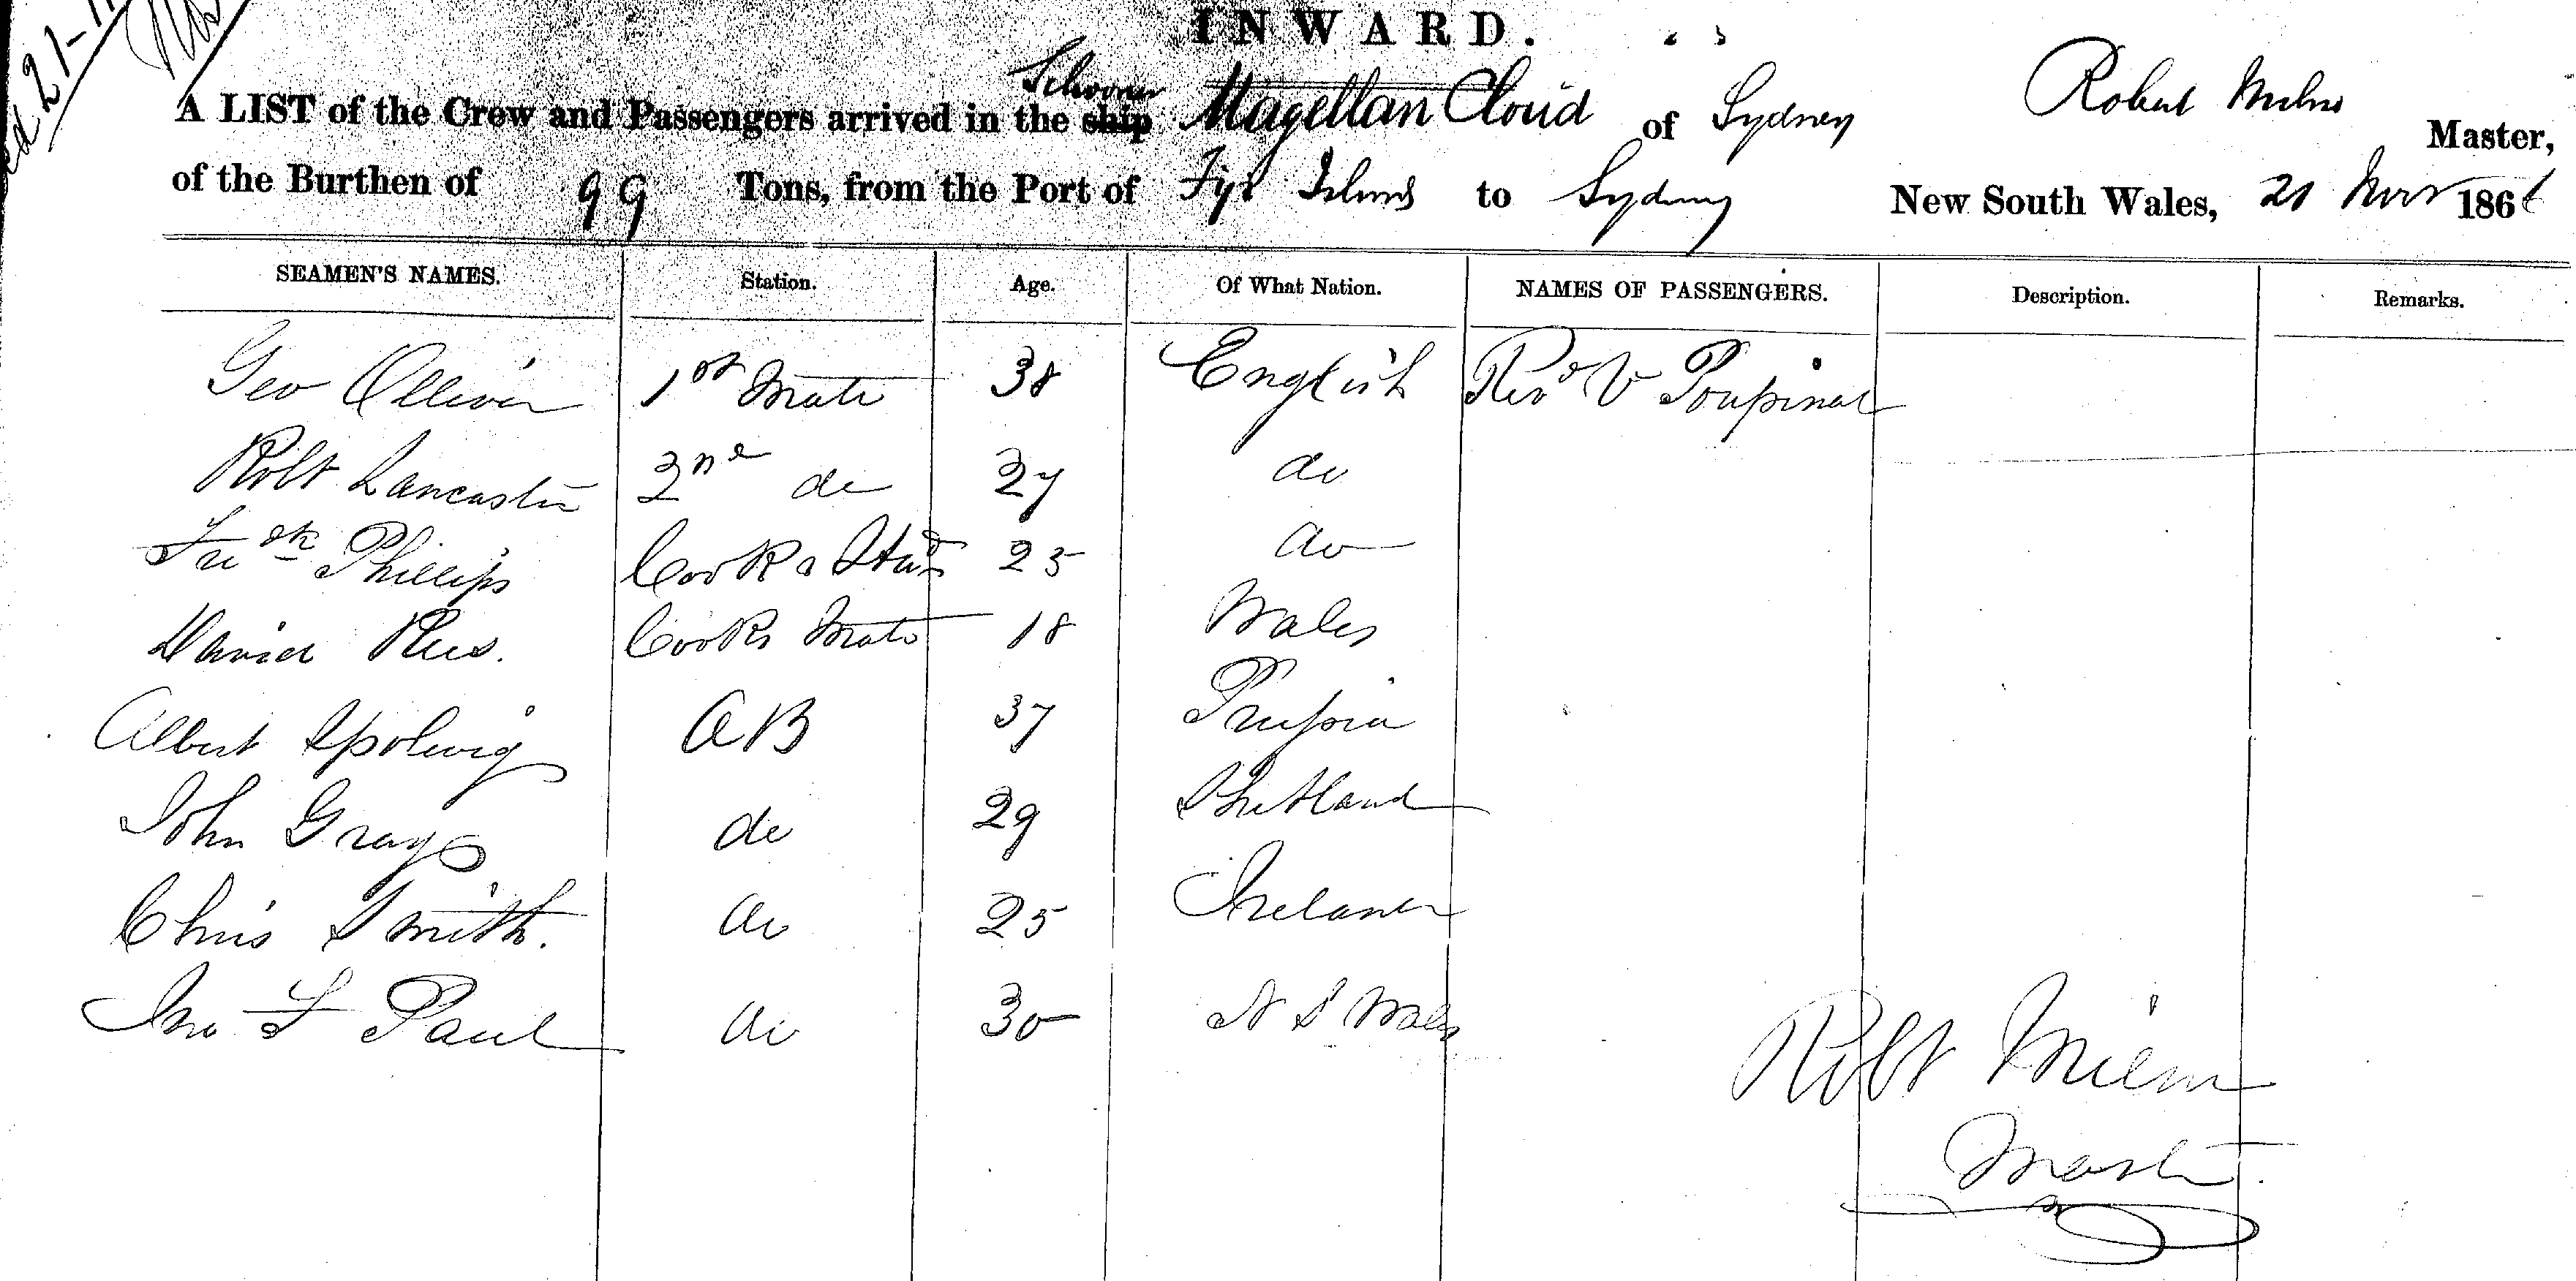 INWARD.
Schooner
A LIST of the Crew and Passengers arrived in the ship Magellan Cloud of Sydney Robert Milne Master,
of the Burthen of 99 Tons, from the Port of Fiji Islands to Sydney New South Wales, 21 Novr 186
SEAMEN'S NAMES. Station. Age. Of What Nation. NAMES OF PASSENGERS. Description. Remarks.
Geo Ollivier 1st Mate 38 English Revd V Poupinel
Robt Lancaster 2nd do 27 do
Fredk Phillips Cook & Stwd 25 do
David Rees. Cooks Mate 18 Wales
Albert 37 AB Prussia
John Gray do 29 Shetland
Chris Smith. do 25 Ireland
Jno F Paul do 30 N S Wales
Robt Milne
Master.